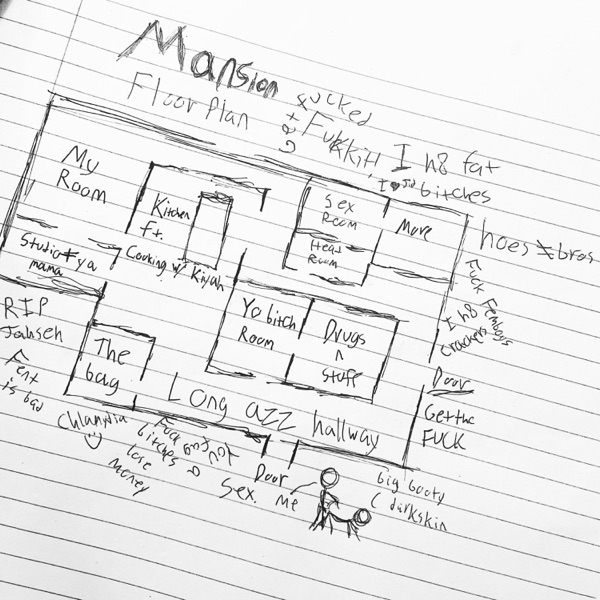 Mansion
Floor Plan
Fucked
Fukkit!
I h8 fat
bitches
My
Room
Kitchen
ft.
Cooking w/ Kiyah
Sex
Room
Head
Room
More
hoes ≠ bros
Studio # ya
mama
Yo bitch
Room
Drugs
n
stuff
Fuck Femboys
I h8
crackers
RIP
Jahseh
Fent
is bad
The
bag
Long azz hallway
Door
Get the
FUCK
Chlamydia
:)
Fuck
bitches
not
love
Money
Door
Sex. Me
big booty
darkskin